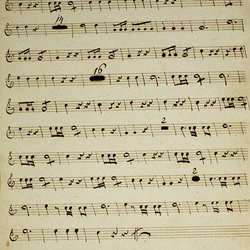 14
16
2
2